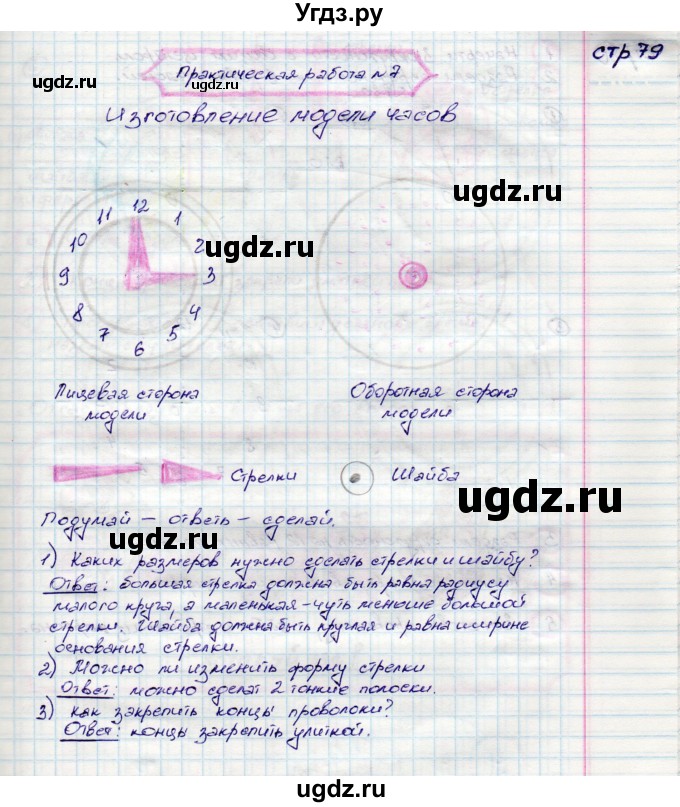 Угдз.ру
стр 79
ugdz.ru
ugdz.ru
Практическая работа №7
Изготовление модели часов
ugdz.ru
ugdz.ru
12
11 1
10 2
9 3
8 4
7 5
6
Лицевая сторона модели
Оборотная сторона модели
Стрелки
Шайба
ugdz.ru
ugdz.ru
Подумай – ответь – сделай.
1) Каких размеров нужно сделать стрелки и шайбу?
Ответ: большая стрелка должна быть равна радиусу
малого круга, а маленькая – чуть меньше большой
стрелки. Шайба должна быть круглая и равна ширине
основания стрелки.
ugdz.ru
ugdz.ru
2) Можно ли изменить форму стрелки
Ответ: можно сделат 2 тонкие полоски.
3) как закрепить концы проволоки?
Ответ: концы закрепить улиткой.
ugdz.ru
ugdz.ru